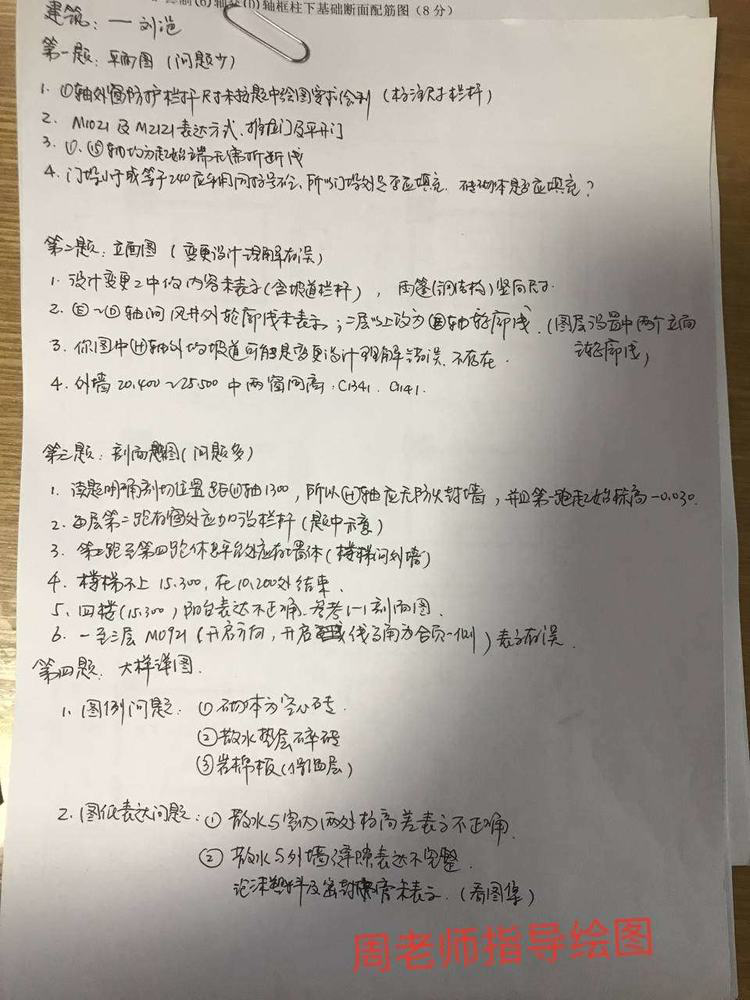 (D)轴框柱下基础断面配筋图（8分）
建筑：— 刘
第一题：平面图（问题少）
1. ①轴外窗防护栏杆尺寸未按题中绘图要求绘制（标注尺寸栏杆）
2. M1021及M2121表达方式、推拉门及平开门
3. ①、⑮轴均为起始端无需折断线
4. 门垛小于或等于240应
第二题：立面图（变更设计理解有误）
1. 设计变更2中的内容未表示（含坡道栏杆），雨篷（钢结构）竖向尺寸.
2. Ⓔ～Ⓓ轴间风井外轮廓线未表示；二层以上改为轴轮廓线.（图层设置中两个立面
轮廓线）
3. 你图中Ⓗ轴外的坡道可能是变更设计理解错误，不存在.
4. 外墙20.400～25.500中两窗间离：C1341. C1141.
第三题：剖面图（问题多）
1. 读题明确剖切位置距Ⓗ轴1300，所以Ⓗ轴应无防火封墙，并且第一跑起始标高-0.030.
2. 每层第二跑有窗处应加设栏杆（题中示意）
3. 第三跑至第四跑休息平台处应有墙体（楼梯间外墙）
4. 楼梯不上15.300，在10.200处结束.
5. 四楼（15.300）阳台表达不正确、参考1-1剖面图.
6. 一至三层M0921（开启方向，开启线交角为合页一侧）表示有误.
第四题：大样详图.
1. 图例问题：①砌体为空心砖.
②散水垫层碎砖
③岩棉板（保温层）
2. 图纸表达问题：①散水与室内两处标高差表示不正确.
②散水与外墙缝隙表达不完整.
泡沫塑料及密封膏未表示.（看图集）
周老师指导绘图